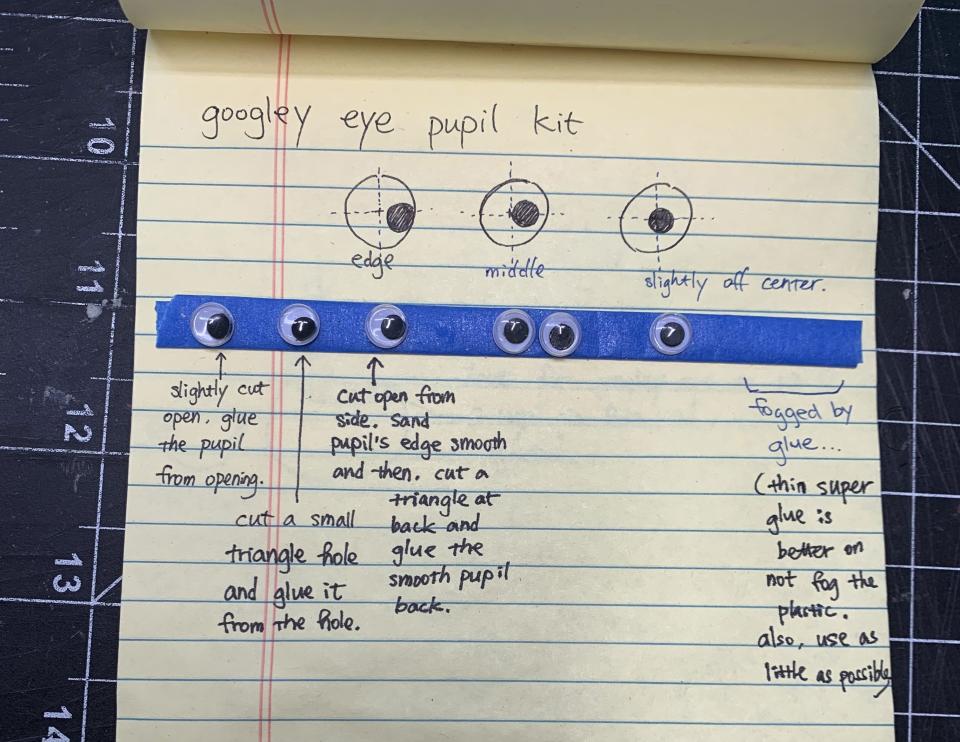 googley eye pupil kit
edge
middle
slightly off center.
slightly cut
open. glue
the pupil
from opening.
cut a small
triangle hole
and glue it
from the hole.
cut open from
side. sand
pupil's edge smooth
and then. cut a
triangle at
back and
glue the
smooth pupil
back.
fogged by
glue...
(thin super
glue is
better on
not fog the
plastic.
also, use as
little as possible)
10
11
12
13
14